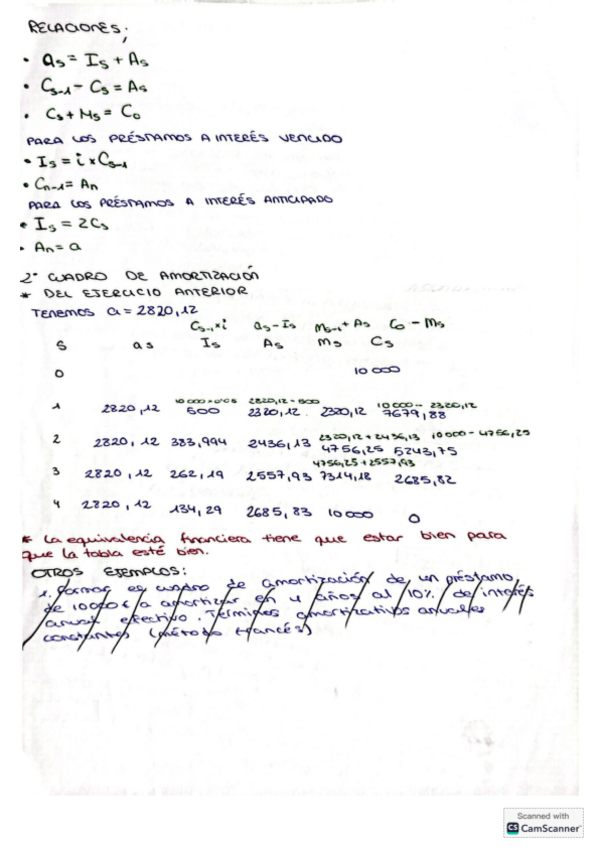 RELACIONES;
• as = Is + As
• Cs-1 - Cs = As
• Cs + Ms = Co
PARA LOS PRÉSTAMOS A INTERÉS VENCIDO
• Is = i × Cs-1
• Cn-1 = An
PARA LOS PRÉSTAMOS A INTERÉS ANTICIPADO
• Is = 2Cs
• An = a
2º CUADRO DE AMORTIZACIÓN
* DEL EJERCICIO ANTERIOR
TENEMOS a = 2820,12
Cs-1 × i as - Is Ms-1 + As Co - Ms
S as Is As Ms Cs
0 10 000
10 000 × 0'05 2820,12 - 500 10 000 - 2320,12
1 2820,12 500 2320,12. 2320,12 7679,88
2320,12 + 2436,13 10 000 - 4756,25
2 2820,12 383,994 2436,13 4756,25 5243,75
4756,25 + 2557,93
3 2820,12 262,19 2557,93 7314,18 2685,82
4 2820,12 134,29 2685,83 10 000 0
* La equivalencia financiera tiene que estar bien para
que la tabla esté bien.
OTROS EJEMPLOS:
1. Formar el cuadro de amortización de un préstamo
de 10000€ a amortizar en 4 años al 10% de interés
anual efectivo. Términos amortizativos anuales
constantes (método francés)
Scanned with
CS CamScanner